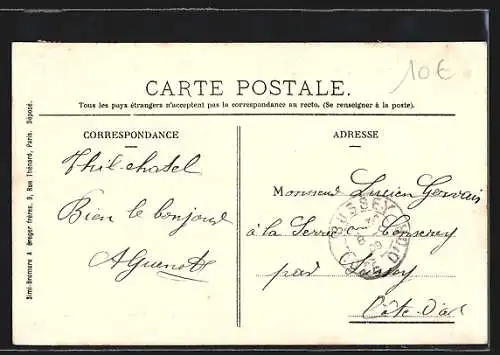 10€
CARTE POSTALE.
Tous les pays étrangers n'acceptent pas la correspondance au recto. (Se renseigner à la poste).
CORRESPONDANCE
Thil-chatel
Bien le bonjour
A Guenot
ADRESSE
Monsieur Lucien Gervais
à la Serrée
par
Côte-d'or
Simi-Bromure A. Breger frères. 9, Rue Thénard, Paris. Déposé.